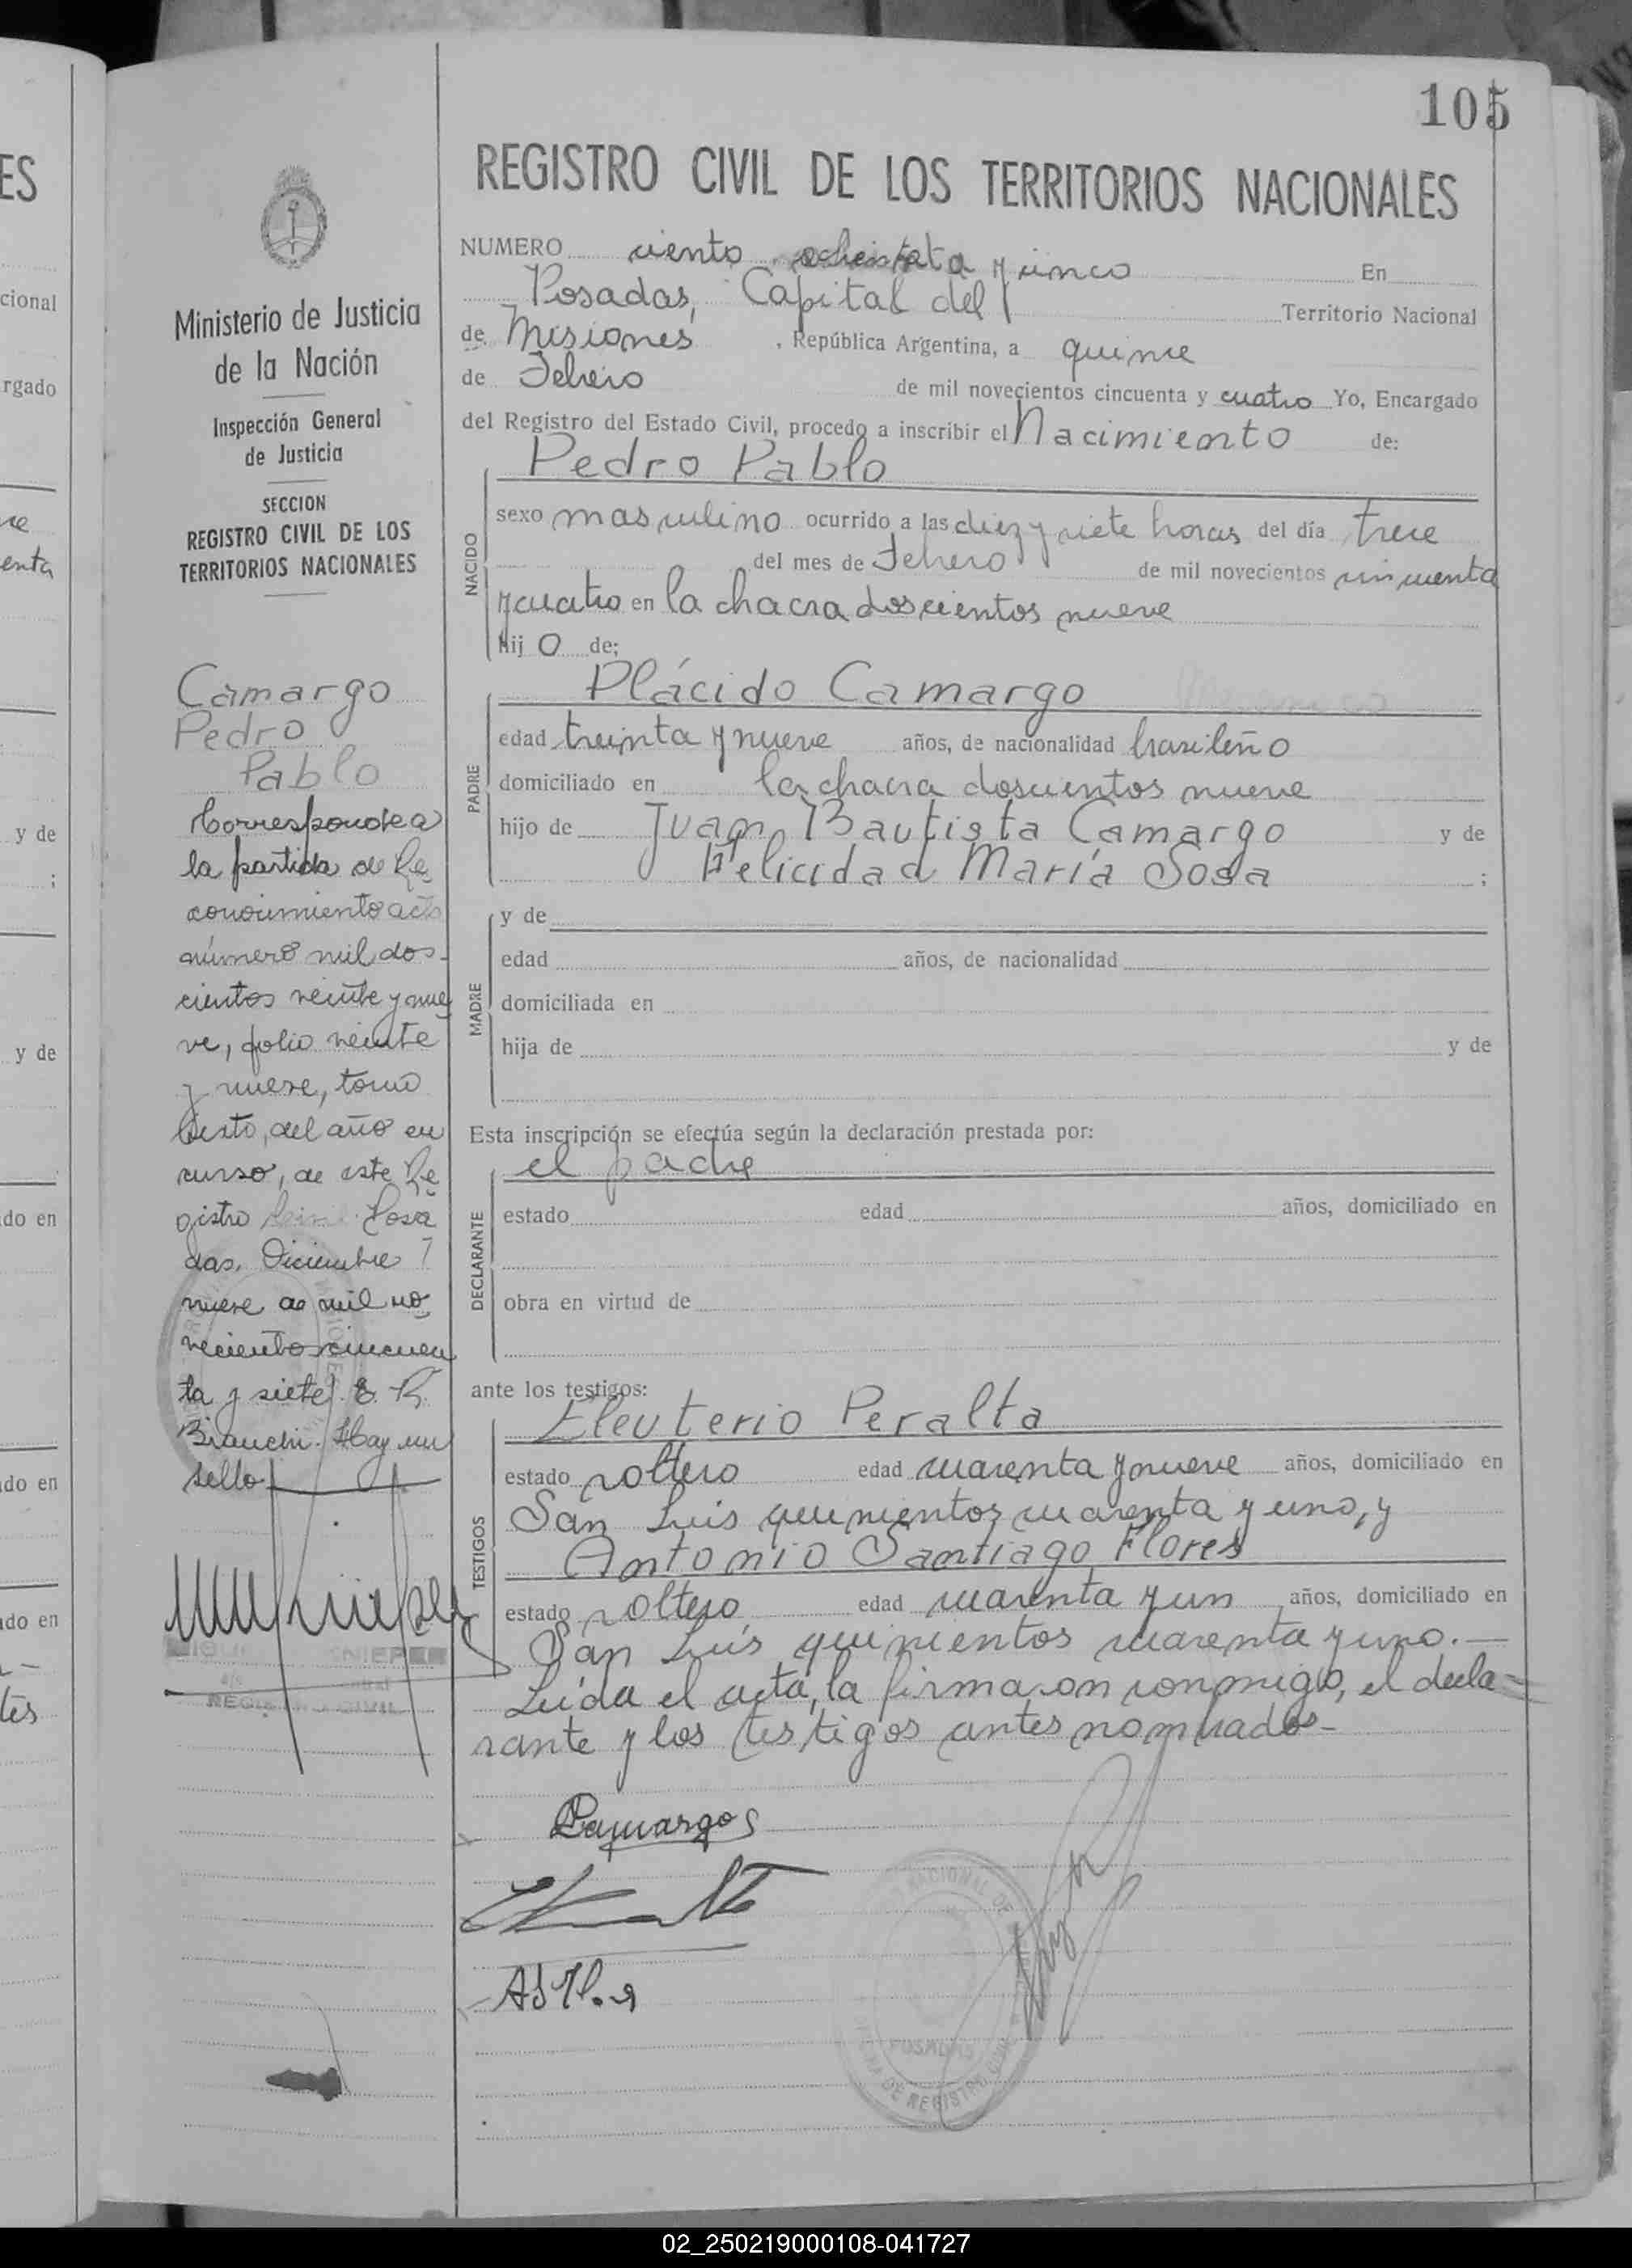 105
REGISTRO CIVIL DE LOS TERRITORIOS NACIONALES
Ministerio de Justicia
de la Nación
Inspección General
de Justicia
SECCION
REGISTRO CIVIL DE LOS
TERRITORIOS NACIONALES
Camargo
Pedro
Pablo
Corresponde a
la partida de Re
conocimiento acta
número mil dos-
cientos veinte y nue
ve, folio veinte
y nueve, tomo
sexto, del año en
curso, de este Re
gistro Posa
das, Diciembre
nueve de mil no
vecientos cincuen
ta y siete. E. R.
Bianchi. Hay un
sello
REGISTRO CIVIL
NUMERO ciento y cinco En
Posadas, Capital del Territorio Nacional
de Misiones, República Argentina, a quince
de Febrero de mil novecientos cincuenta y cuatro Yo, Encargado
del Registro del Estado Civil, procedo a inscribir el Nacimiento de:
Pedro Pablo
NACIDO
sexo masculino ocurrido a las diez y siete horas del día trece
del mes de Febrero de mil novecientos cincuenta
y cuatro en la chacra doscientos nueve
hij o de;
Plácido Camargo
PADRE
edad treinta y nueve años, de nacionalidad brasileño
domiciliado en la chacra doscientos nueve
hijo de Juan Bautista Camargo y de
Felicidad María Sosa ;
MADRE
y de
edad años, de nacionalidad
domiciliada en
hija de y de
Esta inscripción se efectúa según la declaración prestada por:
el padre
DECLARANTE
estado edad años, domiciliado en
obra en virtud de
ante los testigos:
Eleuterio Peralta
TESTIGOS
estado soltero edad cuarenta y nueve años, domiciliado en
San Luis quinientos cuarenta y uno, y
Antonio Santiago Flores
estado soltero edad cuarenta y un años, domiciliado en
San Luis quinientos cuarenta y uno.—
Leída el acta, la firmaron conmigo, el decla-
rante y los testigos antes nombrados-
Camargo
POSADAS
02_250219000108-041727